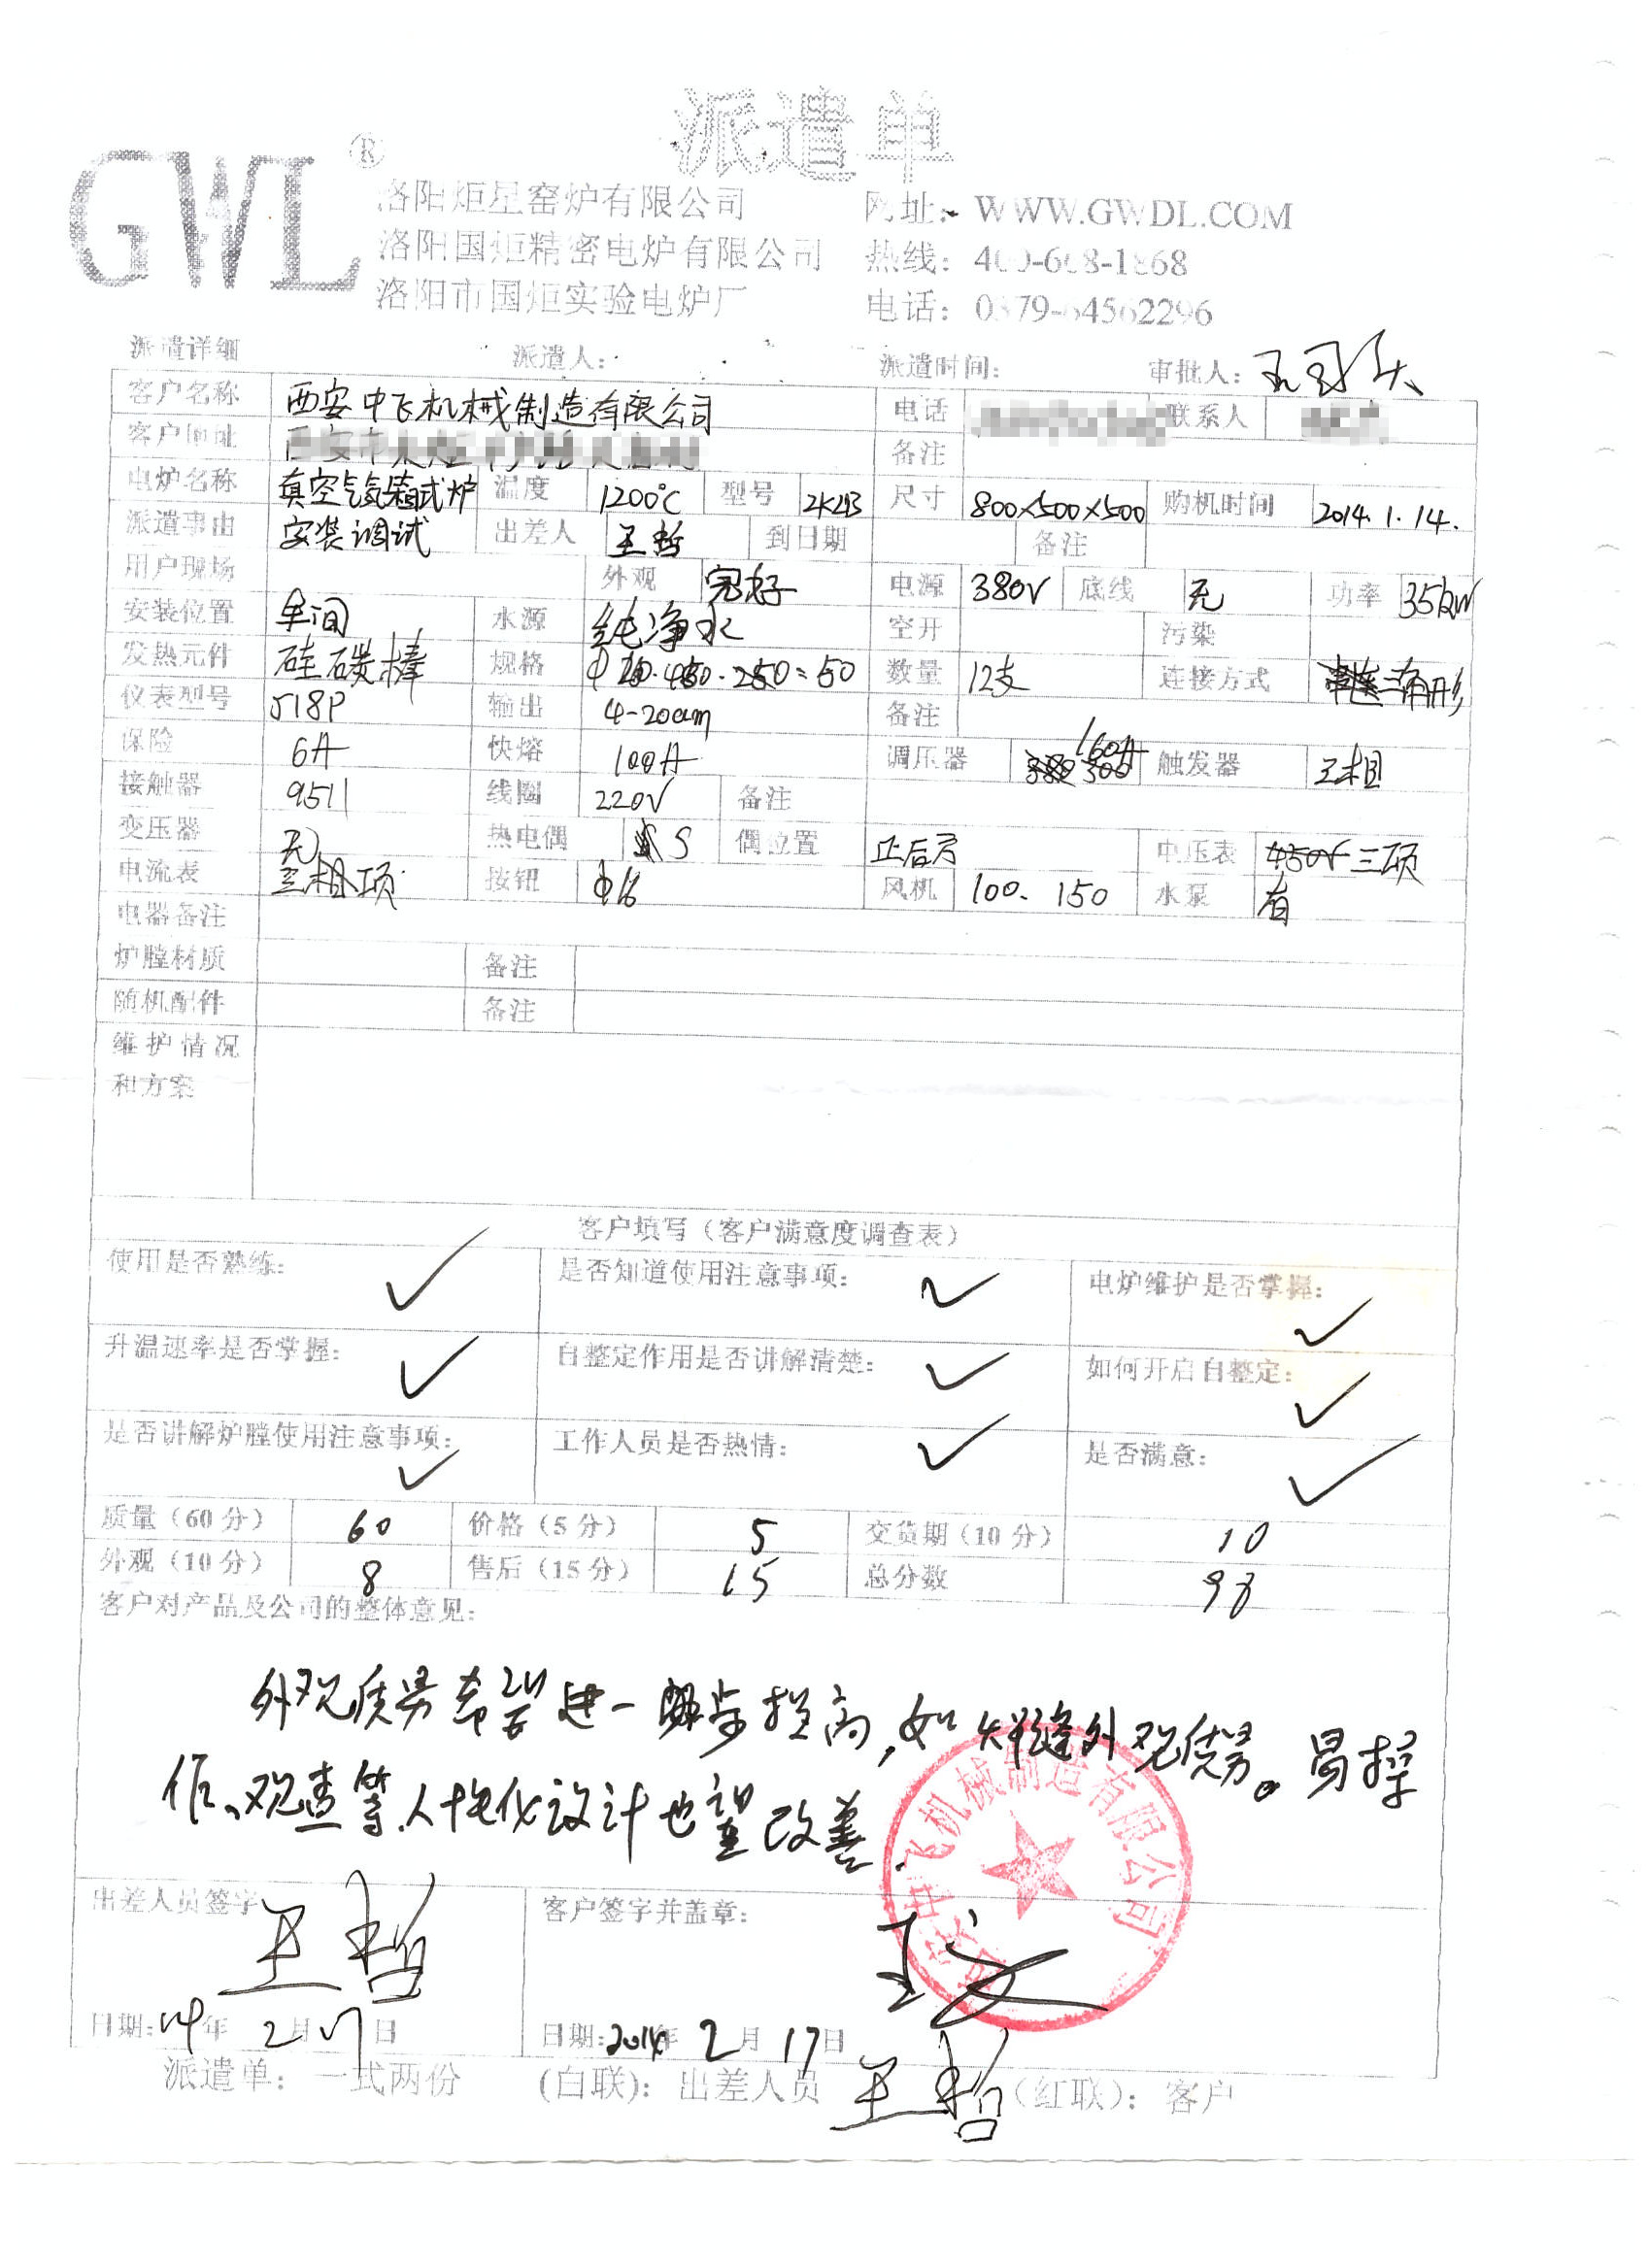 派遣单
GWL®
洛阳炬星窑炉有限公司 网址: WWW.GWDL.COM
洛阳国炬精密电炉有限公司 热线: 400-608-1868
洛阳市国炬实验电炉厂 电话: 0379-64562296
派遣详细 派遣人: 派遣时间: 审批人:
客户名称 西安中飞机械制造有限公司 电话 联系人
客户地址 备注
电炉名称 真空气氛箱式炉 温度 1200℃ 型号 尺寸 800×500×500 购机时间 2014.1.14.
派遣事由 安装调试 出差人 王哲 到日期 备注
用户现场 外观 完好 电源 380V 底线 无 功率 35kW
安装位置 车间 水源 纯净水 空开 污染
发热元件 硅碳棒 规格 数量 12支 连接方式 三角形
仪表型号 518P 输出 4-20am 备注
保险 6A 快熔 100A 调压器 160A 触发器 三相
接触器 9511 线圈 220V 备注
变压器 无 热电偶 S 偶位置 正后方 电压表 450V 三项
电流表 三相项 按钮 Φ16 风机 100、150 水泵 有
电器备注
炉膛材质 备注
随机配件 备注
维护情况
和方案
客户填写(客户满意度调查表)
使用是否熟练: ✓ 是否知道使用注意事项: ✓ 电炉维护是否掌握: ✓
升温速率是否掌握: ✓ 自整定作用是否讲解清楚: ✓ 如何开启自整定: ✓
是否讲解炉膛使用注意事项: ✓ 工作人员是否热情: ✓ 是否满意: ✓
质量(60分) 60 价格(5分) 5 交货期(10分) 10
外观(10分) 8 售后(15分) 15 总分数 98
客户对产品及公司的整体意见:
外观质量希望进一步提高,如焊缝外观质量。易操
作、观查等人性化设计也望改善.
西安中飞机械制造有限公司
出差人员签字 王哲 客户签字并盖章: 王文
日期: 14年 2月17日 日期: 2014年 2月 17日
派遣单: 一式两份 (白联): 出差人员 王哲 (红联): 客户